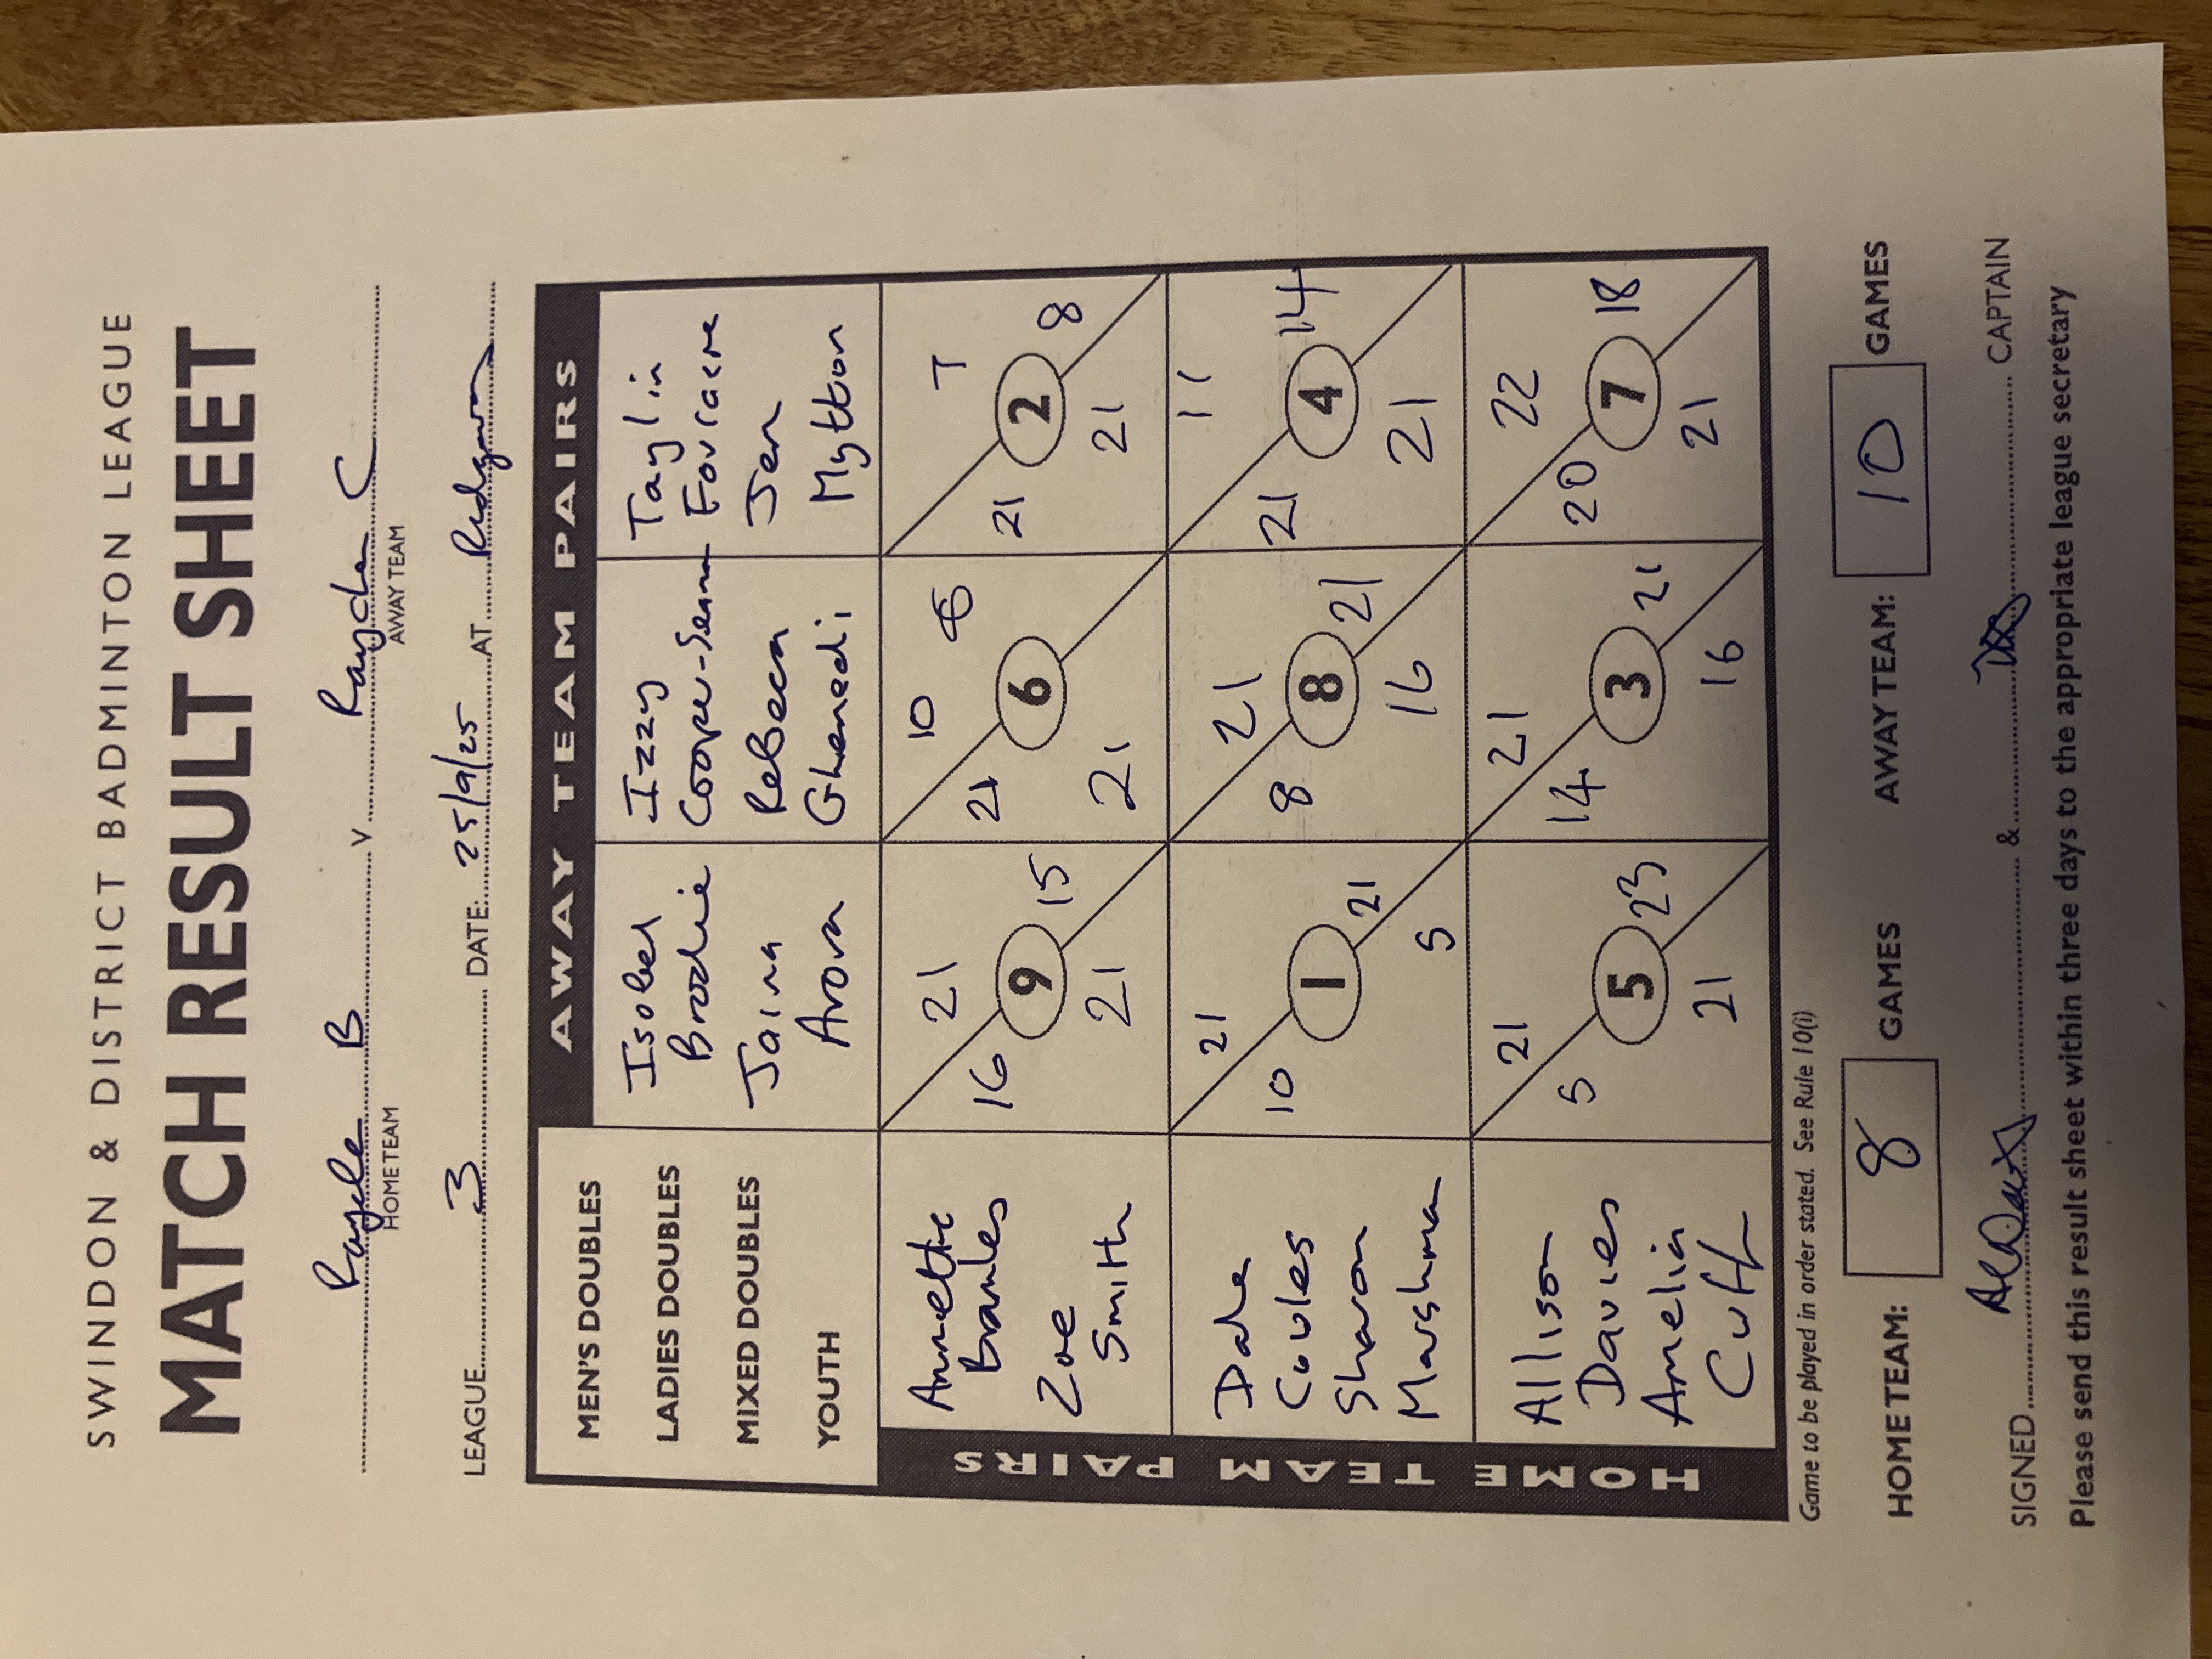 SWINDON & DISTRICT BADMINTON LEAGUE
MATCH RESULT SHEET
Rayele B v Rayele C
HOME TEAM AWAY TEAM
LEAGUE 3 DATE: 25/9/25 AT Ridgeway
AWAY TEAM PAIRS
MEN'S DOUBLES
LADIES DOUBLES
MIXED DOUBLES
YOUTH
Isobel
Brodie
Jaina
Arora
Izzy
Cooper-Seaman
Rebecca
Ghamedi
Taylin
Fouracre
Jen
Mytton
HOME TEAM PAIRS
Annette
Bramles
Zoe
Smith
16 21
9
21 15
21 10
6
21 6
21 7
2
21 8
Dale
Coules
Sharon
Marshman
10 21
1
5 21
8 21
8
16 21
21 11
4
21 14
Allison
Davies
Amelia
Cuff
5 21
5
21 23
14 21
3
16 21
20 22
7
21 18
Game to be played in order stated. See Rule 10(i)
HOME TEAM: 8 GAMES AWAY TEAM: 10 GAMES
SIGNED & CAPTAIN
Please send this result sheet within three days to the appropriate league secretary